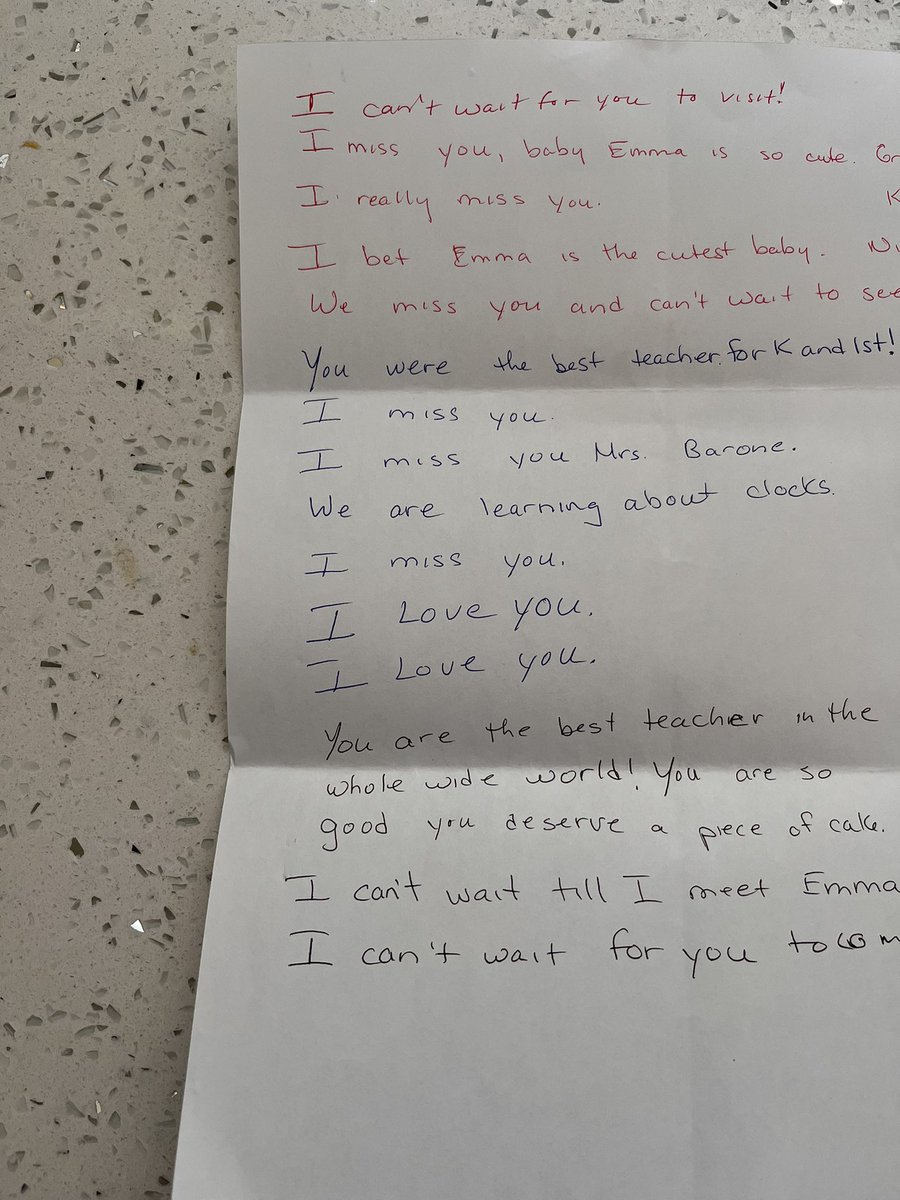 I can't wait for you to visit!
I miss you, baby Emma is so cute.
I really miss you.
I bet Emma is the cutest baby.
We miss you and can't wait to see
You were the best teacher for K and 1st!
I miss you.
I miss you Mrs. Barone.
We are learning about clocks.
I miss you.
I Love you.
I Love you.
You are the best teacher in the
whole wide world! You are so
good you deserve a piece of cake.
I can't wait till I meet Emma
I can't wait for you to